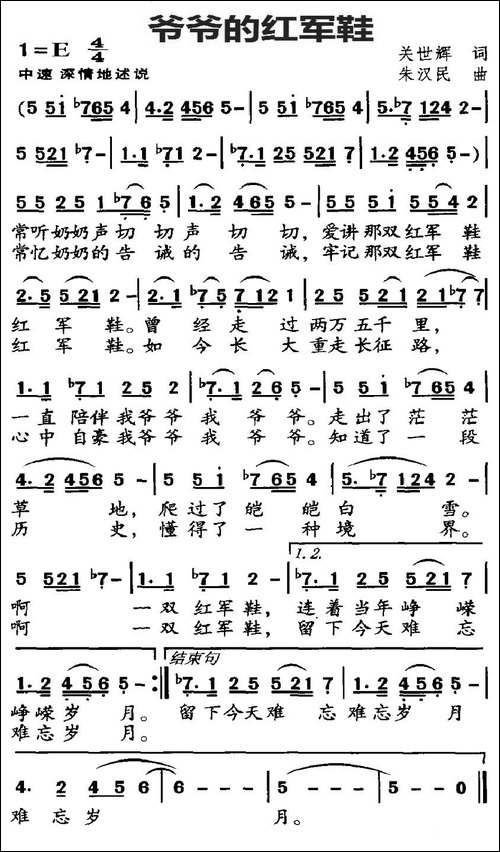 爷爷的红军鞋
1=E 4/4
关世辉 词
中速 深情地述说
朱汉民 曲
(5 5 5 i ♭7 6 5 4 | 4. 2 4 5 6 5 - | 5 5 i ♭7 6 5 4 | 5. ♭7 1 2 4 2 - |
5 5 2 1 ♭7 - | 1. 1 ♭7 1 2 - | ♭7. 1 2 5 5 2 1 7 | 1. 2 4 5 6 5 - )|
5 5 2 5 1 ♭7 6 5 | 1. 2 4 6 5 5 - | 5 5 5 i 5 5 4 2 |
常听奶奶声切 切声 切 切, 爱讲那双红军 鞋
常忆奶奶的告 诫的 告 诫, 牢记那双红军 鞋
2. 5 5 2 1 2 - | 2. 1 ♭7 5 7 1 2 1 | 2 5 5 2 1 2 1 ♭7 7 |
红 军 鞋。曾 经 走 过 两万 五千 里,
红 军 鞋。如 今 长 大 重走 长征 路,
1. 1 ♭7 1 2 5 2 | ♭7. 1 2 6 5 - | 5 5 5 i ♭7 6 5 4 |
一直 陪伴 我爷爷 我 爷 爷。走 出了 茫 茫
心中 自豪 我爷爷 我 爷 爷。知 道了 一 段
4. 2 4 5 6 5 - | 5 5 i ♭7 6 5 4 | 5. ♭7 1 2 4 2 - |
草 地, 爬 过了 皑 皑 白 雪。
历 史, 懂 得了 一 种 境 界。
1. 2.
5 5 2 1 ♭7 - | 1. 1 ♭7 1 2 - | ♭7. 1 2 5 5 2 1 7 |
啊 一 双 红军 鞋, 连 着 当年 峥 嵘
啊 一 双 红军 鞋, 留 下 今天 难 忘
结束句
1. 2 4 5 6 5 - :‖ ♭7. 1 2 5 5 2 1 7 | 1. 2 4 5 6 5 - |
峥嵘岁 月。 留下今天难 忘 难忘岁 月
难忘岁 月。
4. 2 4 5 6 | 6 - - - | 5 - - - | 5 - - 0 ‖
难 忘 岁 月。